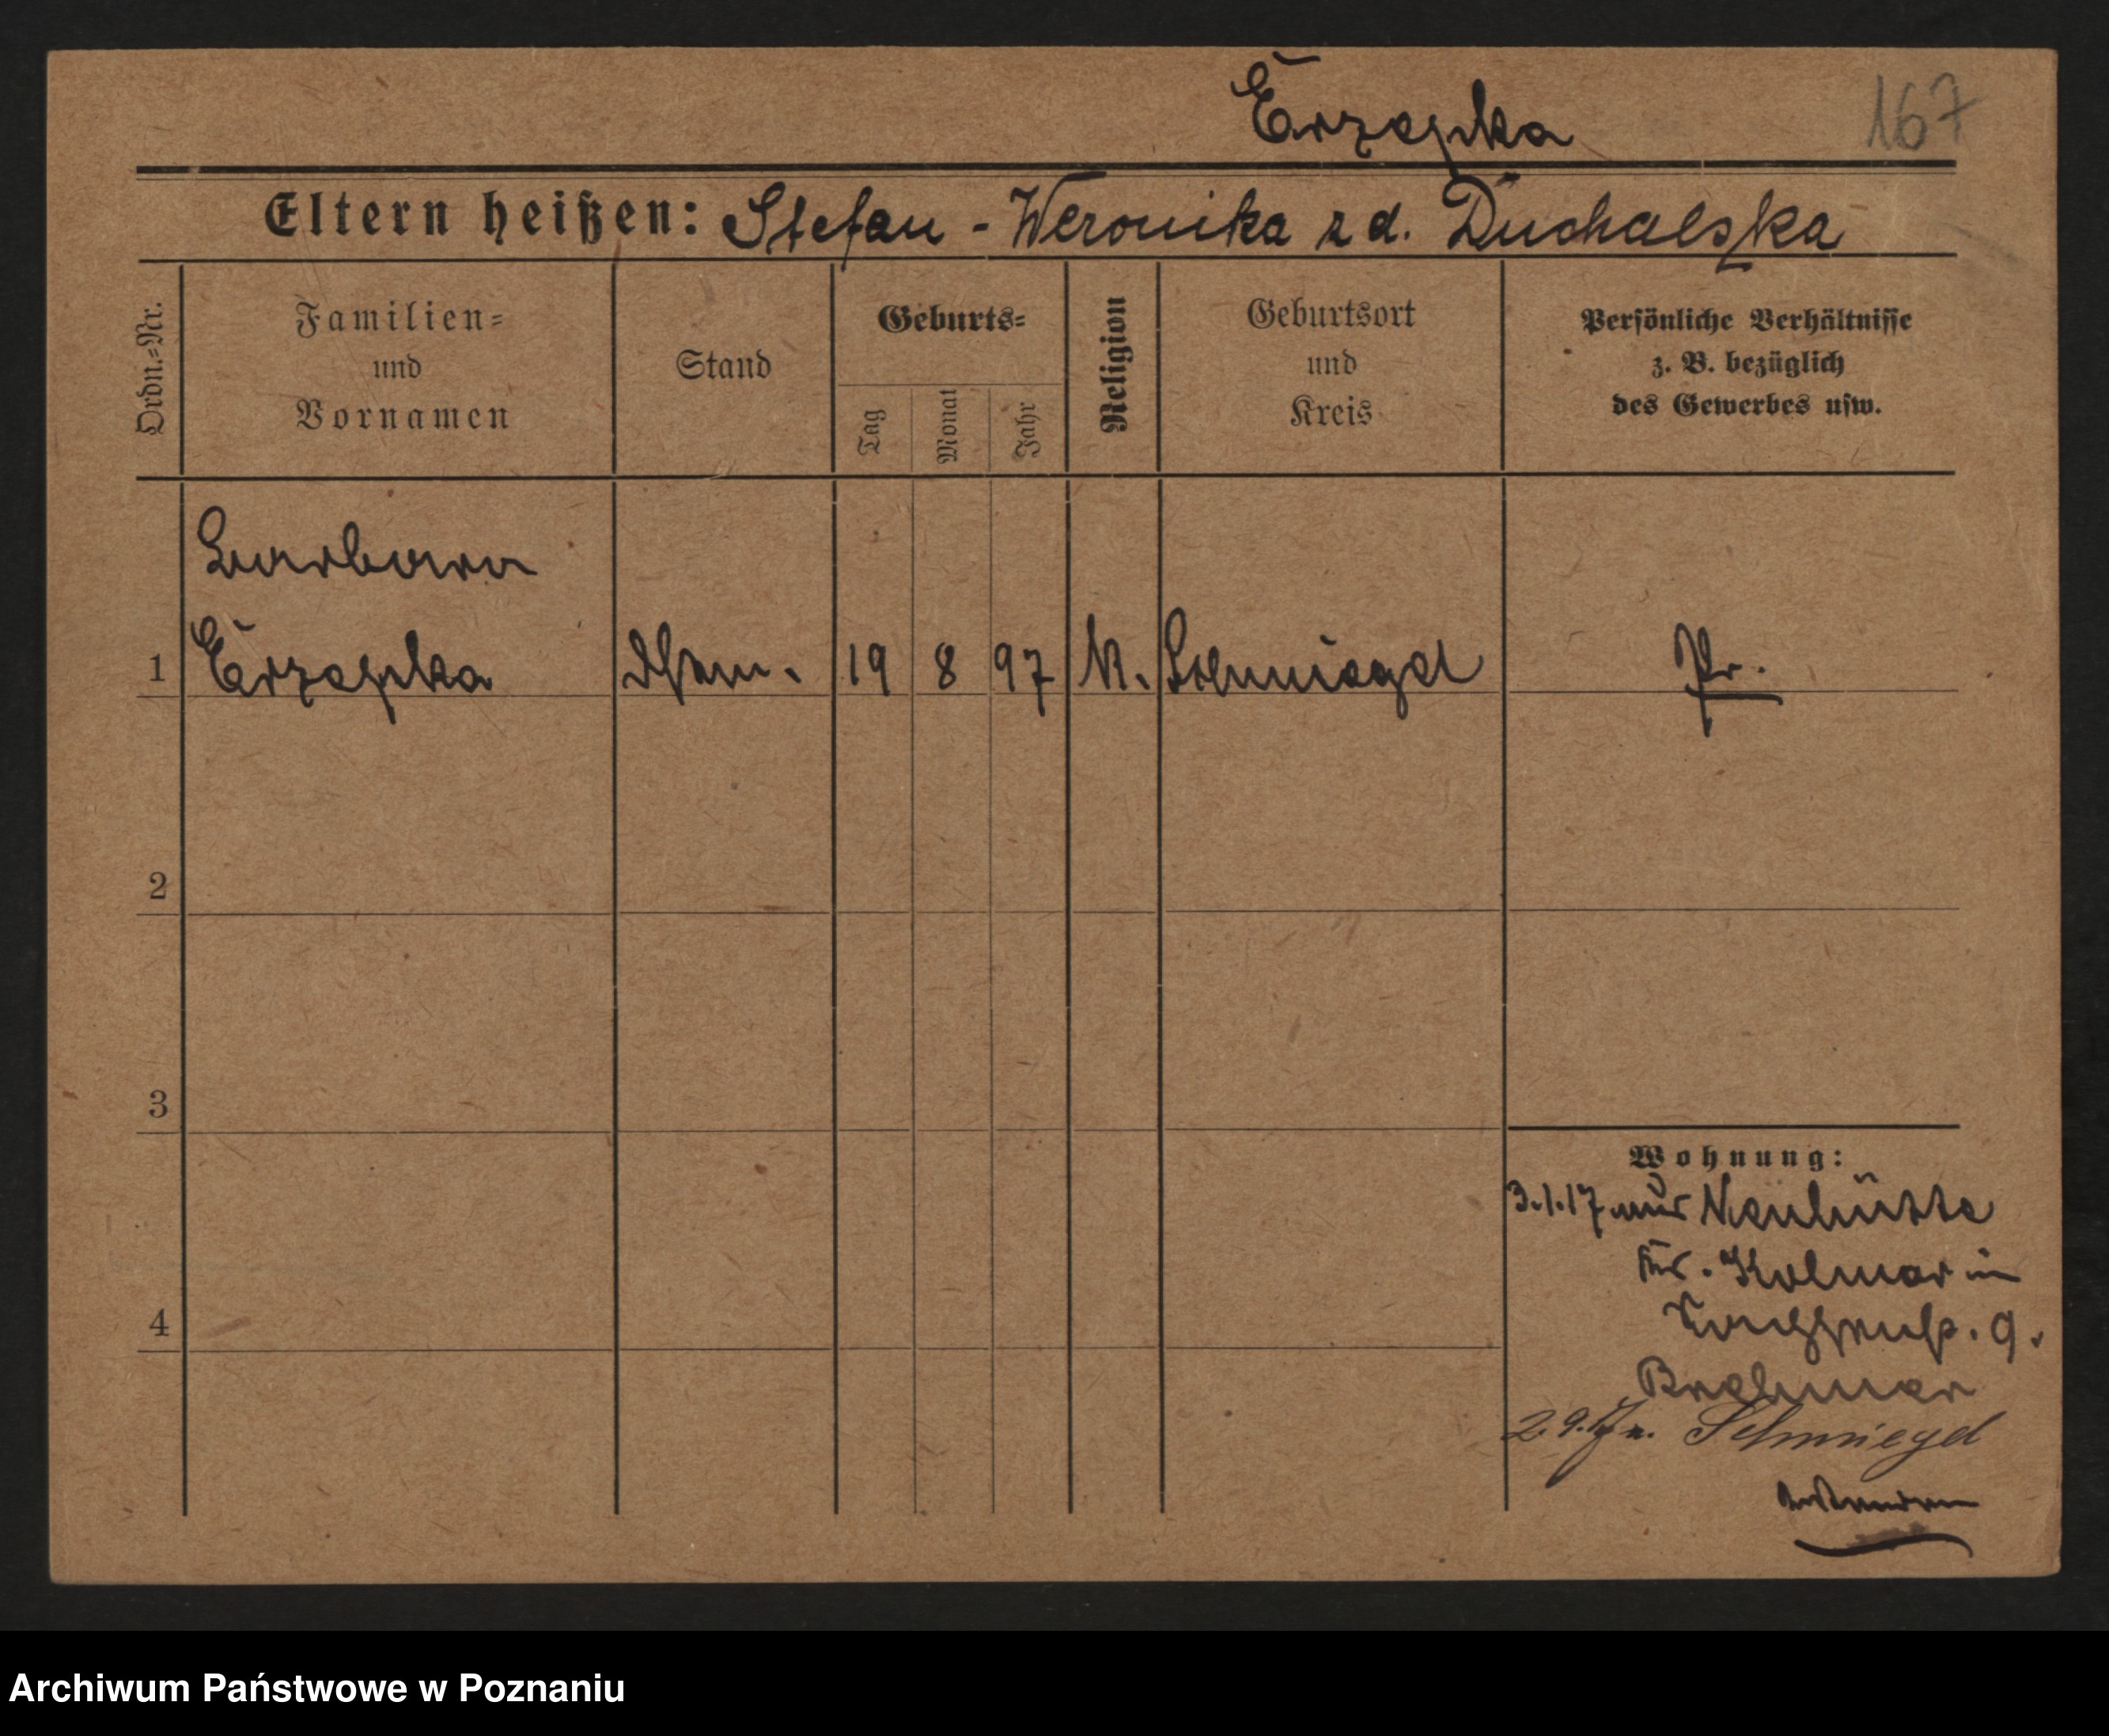 167
Eltern heißen: Stefan - Weronika z d. Duchalska
Ordn.=Nr.
Familien=
und
Vornamen
Stand
Geburts=
Tag
Monat
Jahr
Religion
Geburtsort
und
Kreis
Persönliche Verhältnisse
z. B. bezüglich
des Gewerbes usw.
Barbara
1 19 8 97 K. Schmiegel Pr.
2
3
4
Wohnung:
3.1.17 Neuhütte
Kr. Kolmar in
9.
29.17 n. Schmiegel
Archiwum Państwowe w Poznaniu